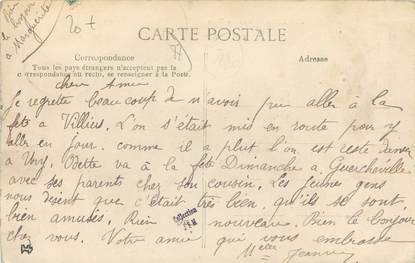 bien le bonjour
à Marguerite
20+
CARTE POSTALE
Correspondance
Tous les pays étrangers n'acceptent pas la
correspondance au recto, se renseigner à la Poste.
Adresse
Cher Amie
Je regrette beaucoup de n'avois pu aller à la
fête à Villiers. L'on s'était mis en route pour y
aller en jour. comme il a plut l'on est resté danser
à Ury. Odette va à la fête Dimanche à Guercheville
avec ses parents chez son cousin. Les jeunes gens
nous disent que c'était très bien, qu'ils se sont
bien amusés. Rien nouveau. Bien le bonjour
chez vous. Votre amie qui vous embrasse
Melle Jeanne
Collection